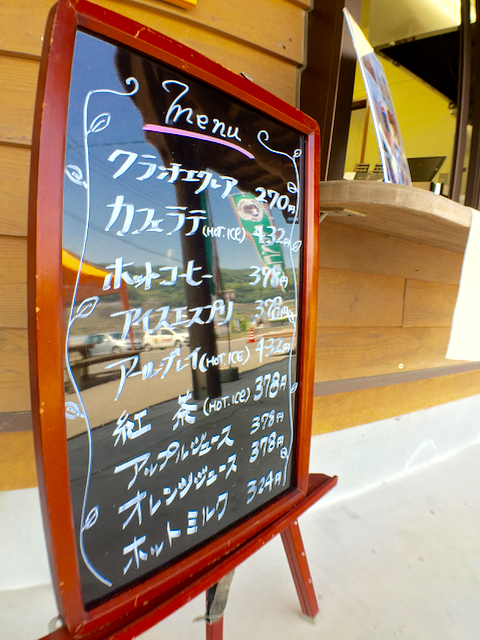 menu
クランチエクレア 270円
カフェラテ(HOT.ICE) 432円
ホットコーヒー 378円
アイスエスプリ 378円
アールグレイ(HOT.ICE) 432円
紅 茶(HOT.ICE) 378円
アップルジュース 378円
オレンジジュース 378円
ホットミルク 324円